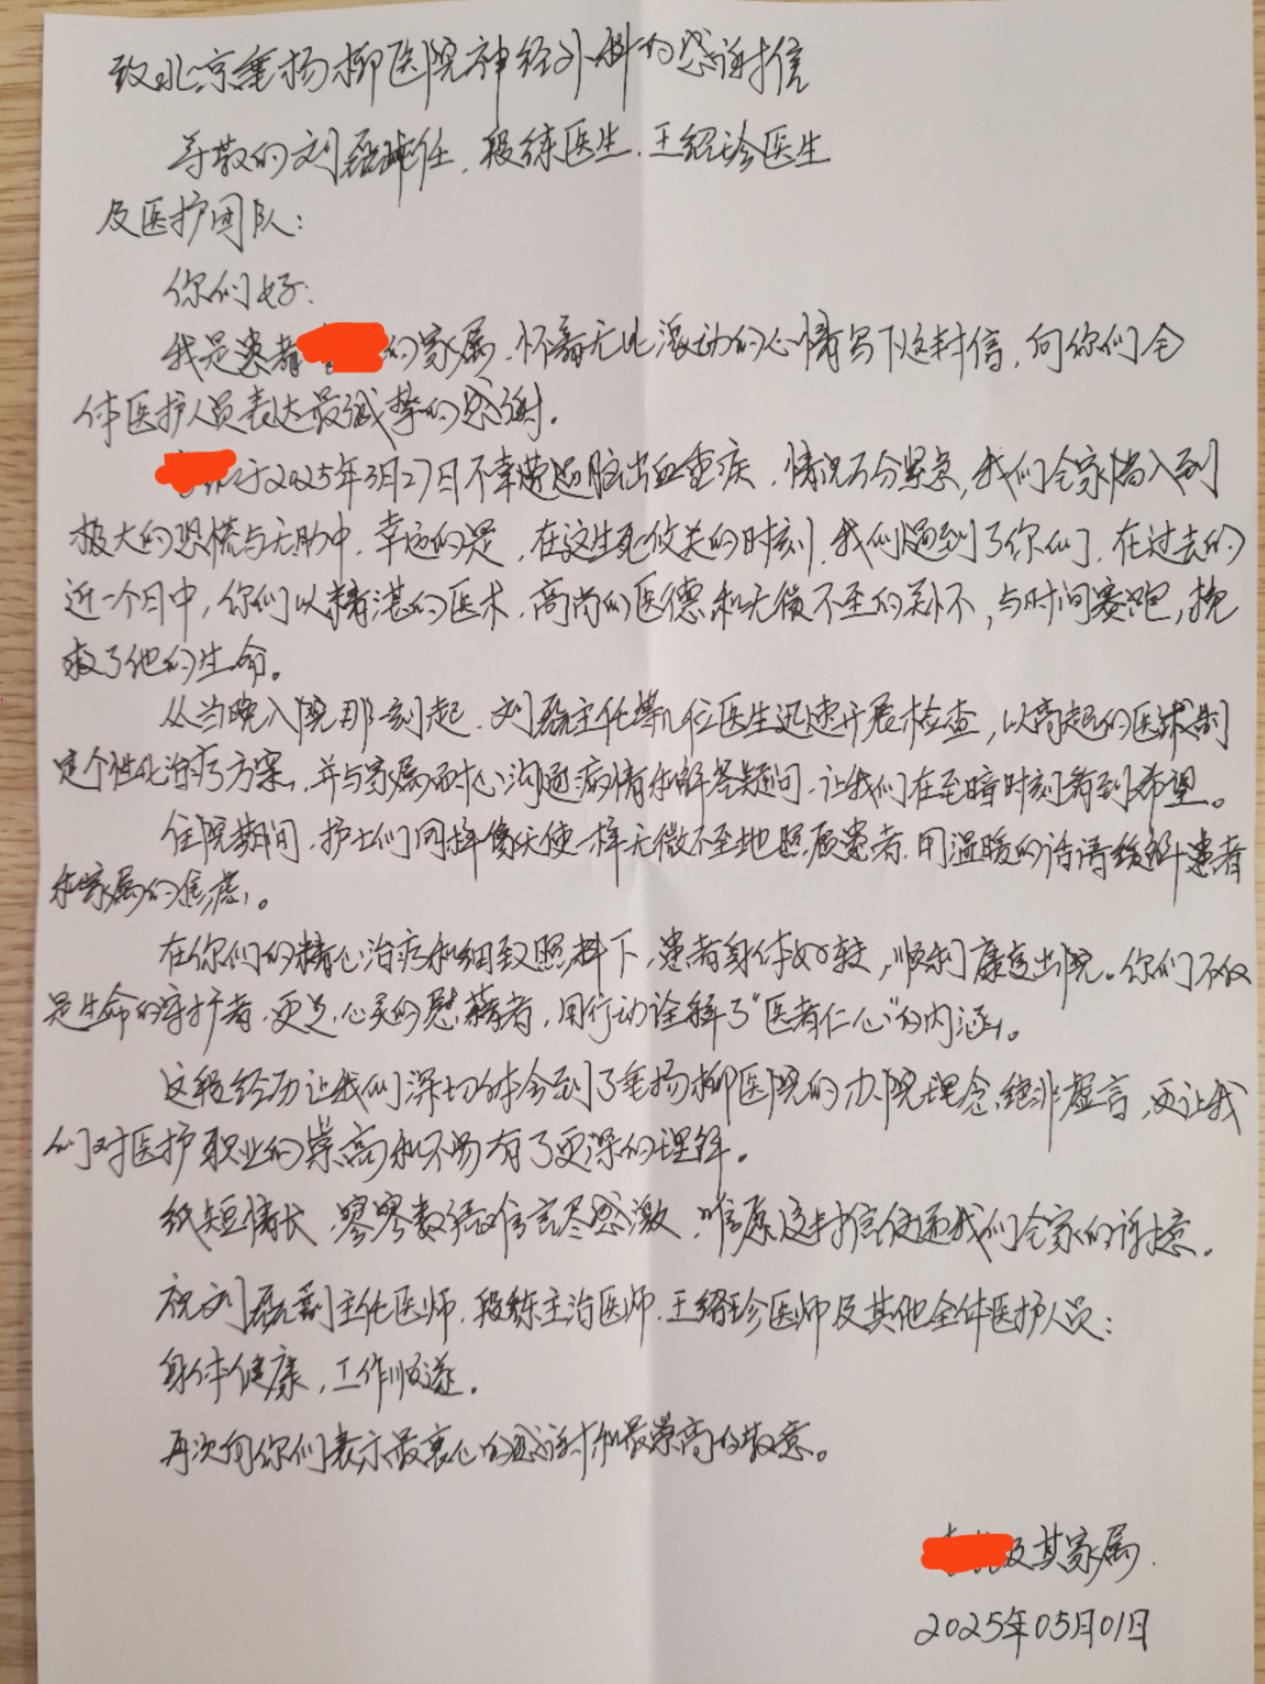 致北京垂杨柳医院神经外科的感谢信
尊敬的刘磊主任、段练医生、王绍珍医生
及医护团队:
你们好:
我是患者 的家属,怀着无比激动的心情写下这封信,向你们全
体医护人员表达最诚挚的感谢。
于2025年3月27日不幸遭遇脑出血重疾,情况万分紧急,我们全家陷入到
极大的恐慌与无助中,幸运的是,在这生死攸关的时刻,我们遇到了你们,在过去的
近一个月中,你们以精湛的医术、高尚的医德和无微不至的关怀,与时间赛跑,挽
救了他的生命。
从当晚入院那刻起,刘磊主任等几位医生迅速开展检查,以高超的医术制
定个性化治疗方案,并与家属耐心沟通病情和解答疑问,让我们在至暗时刻看到希望。
住院期间,护士们同样像天使一样无微不至地照顾患者,用温暖的话语缓解患者
和家属的焦虑。
在你们的精心治疗和细致照料下,患者身体好转,顺利康复出院。你们不仅
是生命的守护者,更是心灵的慰藉者,用行动诠释了“医者仁心”的内涵。
这段经历让我们深切体会到了垂杨柳医院的办院理念绝非虚言,更让我
们对医护职业的崇高和不易有了更深的理解。
纸短情长,寥寥数语难言尽感激,惟愿这封信传递我们全家的谢意。
祝刘磊副主任医师、段练主治医师、王绍珍医师及其他全体医护人员:
身体健康,工作顺遂。
再次向你们表示最衷心的感谢和最崇高的敬意。
及其家属.
2025年05月01日